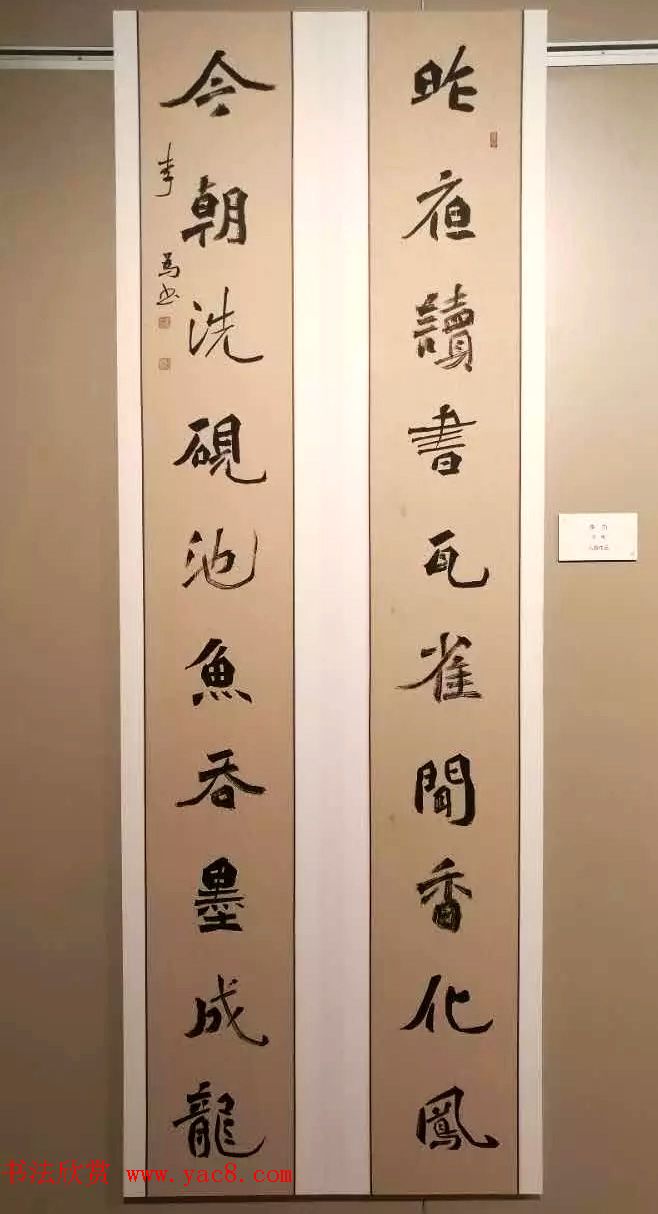 昨夜讀書瓦雀聞香化鳳
今朝洗硯池魚吞墨成龍
书法欣赏 www.yac8.com